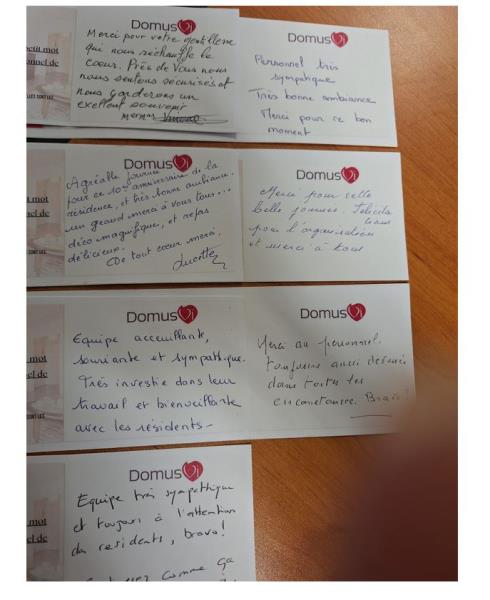 DomusVi
Merci pour votre gentillesse
qui nous réchauffe le
coeur. Près de Vous nous
nous sentons sécurisés et
nous garderons un
exellent souvenir
DomusVi
Personnel très
sympatique
Très bonne ambiance
Merci pour ce bon
moment
etit mot
onnel de
DomusVi
Agréable journée
pour ce 10e anniversaire de la
résidence, et très bonne ambiance.
un grand merci à vous tous...
déco magnifique, et repas
délicieux.
De tout coeur merci.
Lucette
DomusVi
Merci pour cette
belle journée. Félicita
tions
pour l'organisation
et merci à tous
mot
nel de
DomusVi
Equipe accueillante,
souriante et sympathique.
Très investie dans leur
travail et bienveillante
avec les résidents-
DomusVi
Merci au personnel.
toujours aussi
dans toutes les
circonstances. Bravo!
mot
el de
DomusVi
Equipe très sympathique
et toujours à l'attention
des residents, bravo!
comme ça
mot
el de